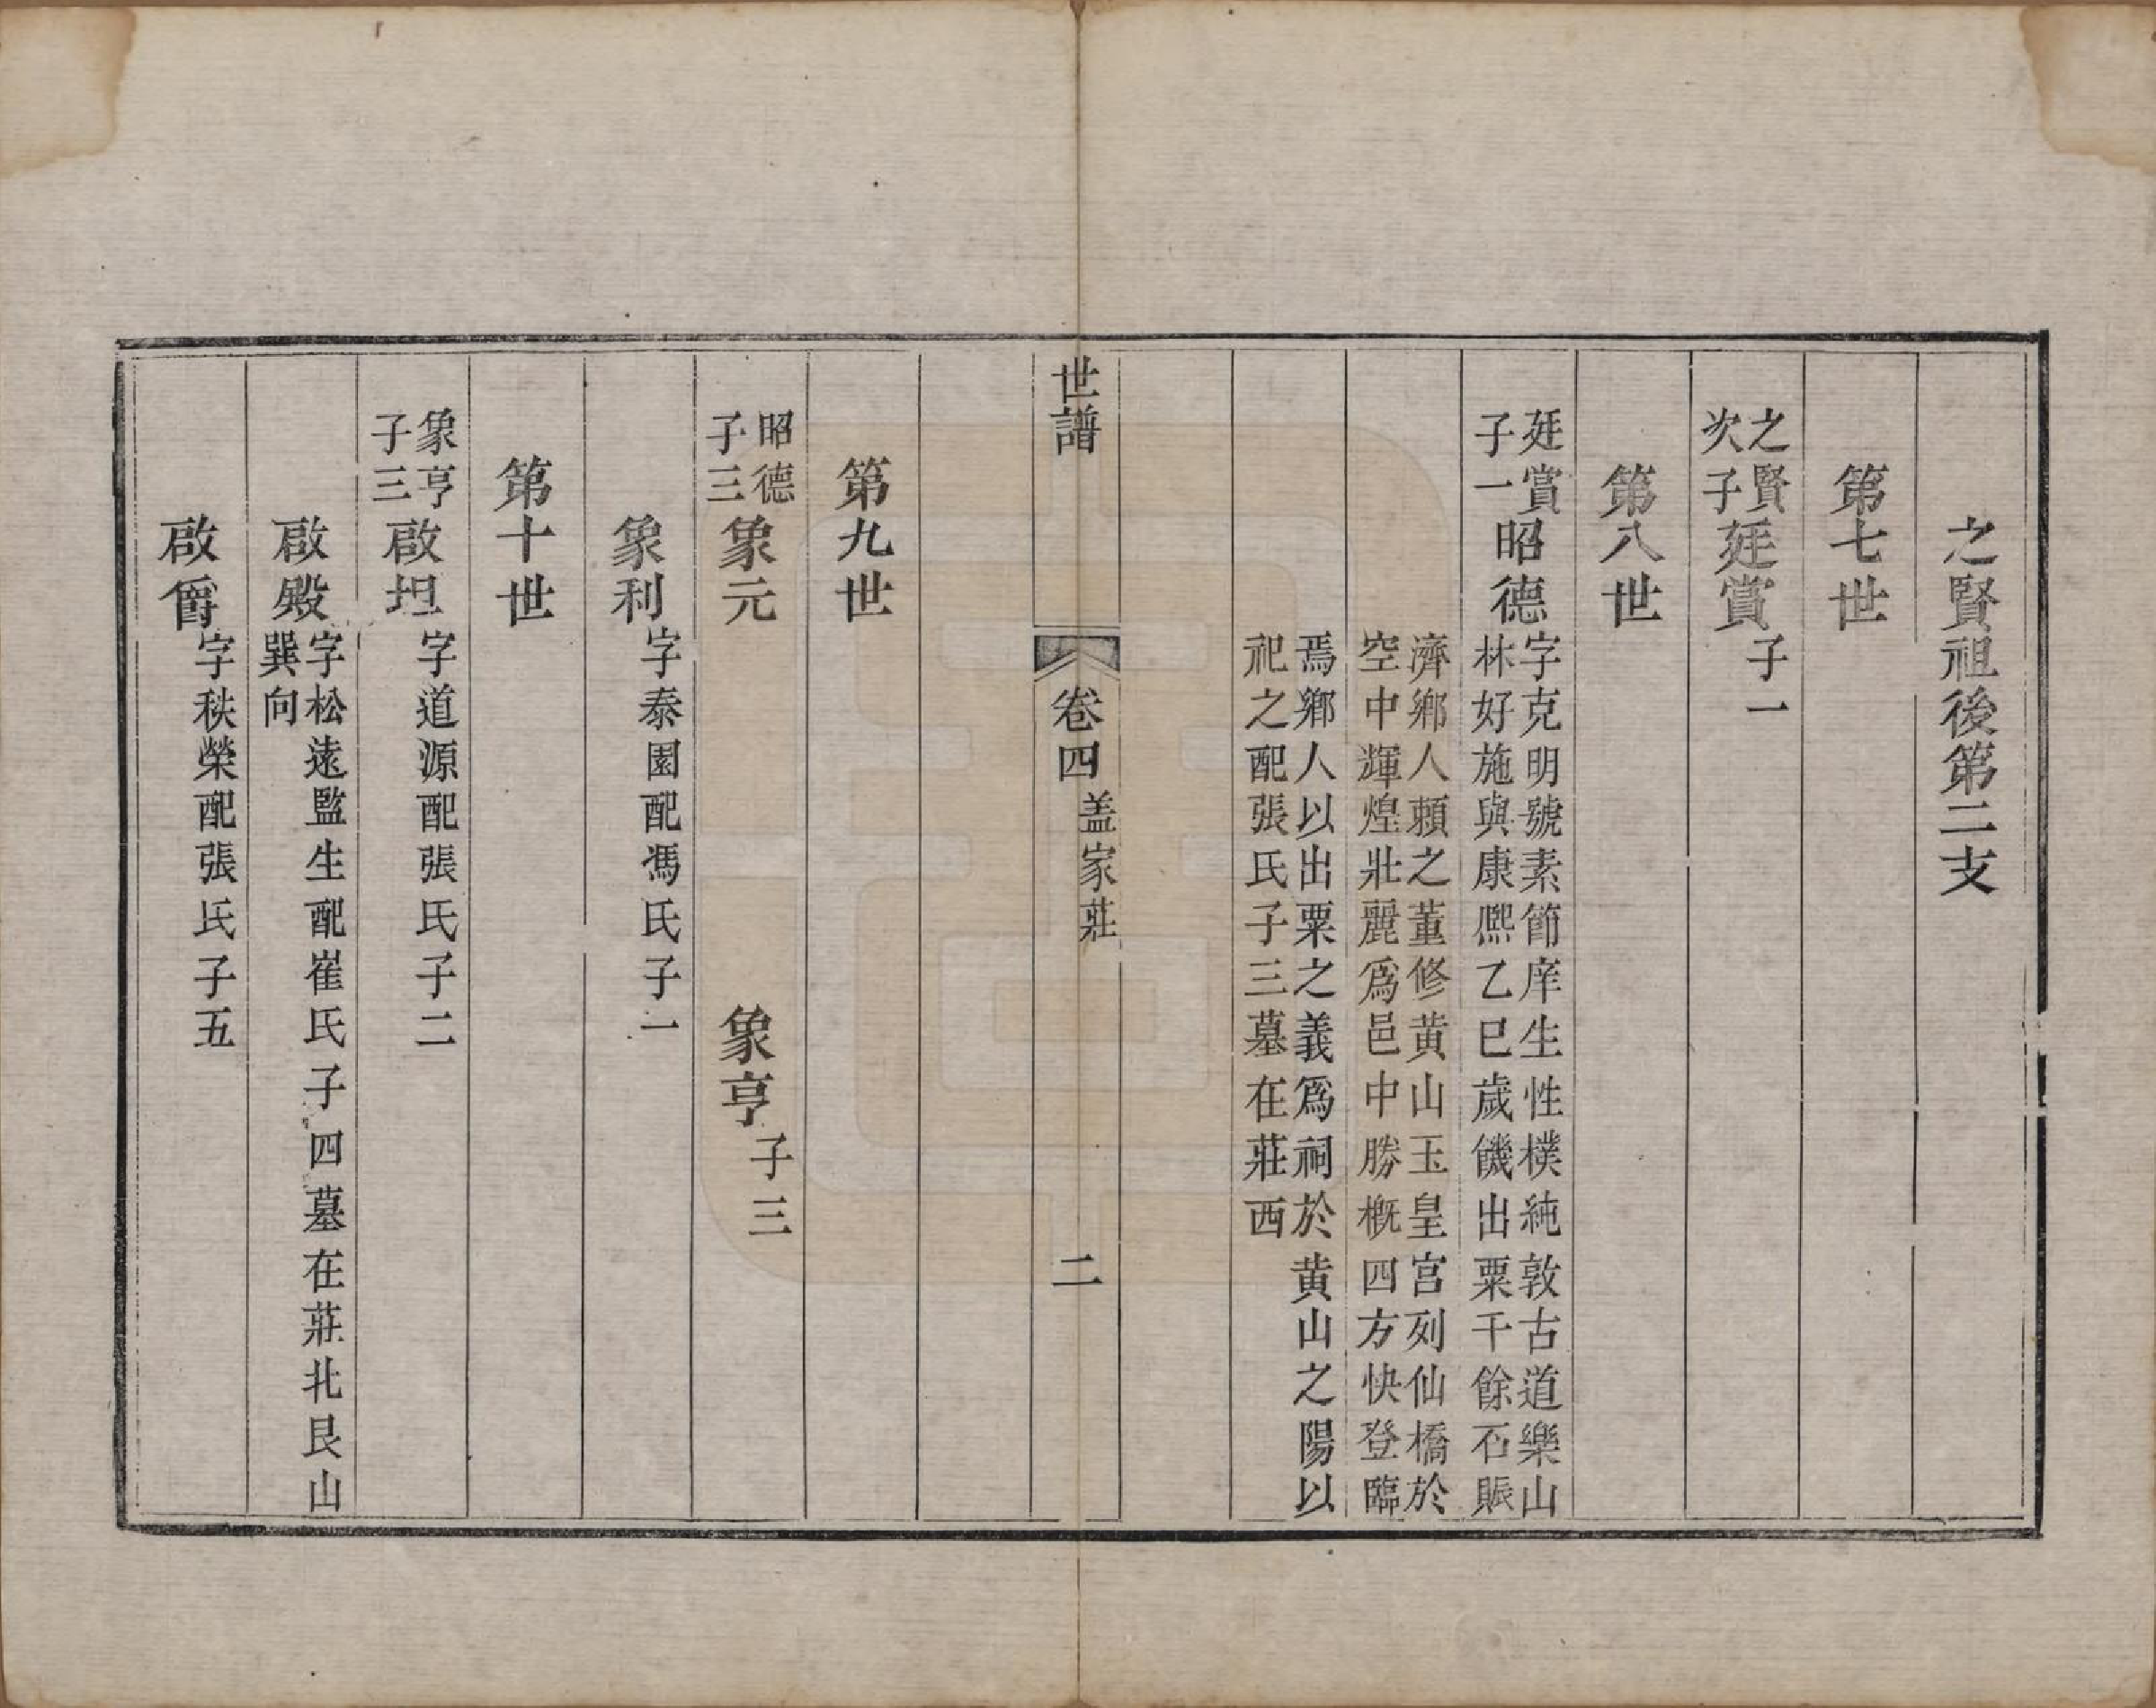 之賢祖後第二支
第七世
之賢
次子
廷賞
子一
第八世
廷賞
子一
昭德
字克明號素節庠生性樸純敦古道樂山
林好施與康熈乙巳歲饑出粟千餘石賑
濟鄉人頼之董修黄山玉皇宫列仙橋於
空中輝煌壯麗爲邑中勝概四方快登臨
焉鄉人以出粟之義爲祠於黄山之陽以
祀之配張氏子三墓在莊西
世譜
卷四
盖家莊
二
第九世
昭德
子三
象元
象亨
子三
象利
字泰園配馮氏子一
第十世
象亨
子三
啟坦
字道源配張氏子二
啟殿
字松遠監生配崔氏子四墓在莊北艮山
巽向
啟爵
字秩榮配張氏子五